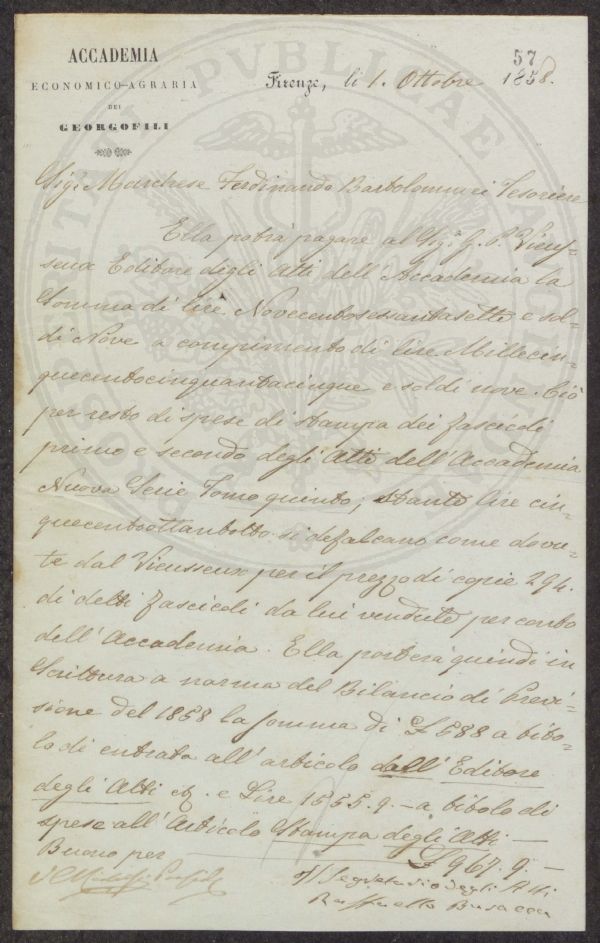 ACCADEMIA
ECONOMICO-AGRARIA
DEI
GEORGOFILI
57
Firenze, li 1. Ottobre 1858.
PROSPERITATI PVBLICAE AVGENDAE
Sig.r Marchese Ferdinando Bartolommei Tesoriere
Ella potrà pagare al Sig.r G. P. Vieus-
seux Editore degli Atti dell'Accademia la
Somma di lire Novecentosessantasette e sol-
di Nove a compimento di lire Millecin-
quecentocinquantacinque e soldi nove. Ciò
per resto di spese di stampa dei fascicoli
primo e secondo degli Atti dell'Accademia
Nuova Serie Tomo quinto; stante lire cin-
quecentottantotto si defalcano come dovu-
te dal Vieusseux per il prezzo di copie 294.
di detti fascicoli da lui vendute per conto
dell'Accademia. Ella porterà quindi in
Scrittura a norma del Bilancio di Previ-
sione del 1858 la somma di £ 588 a tito-
lo di entrata all'articolo dall'Editore
degli Atti e Lire 1555. 9. - a titolo di
spese all'Articolo Stampa degli Atti —
Buono per £ 967. 9. -
Il Segretario degli Atti
Raffaello Busacca